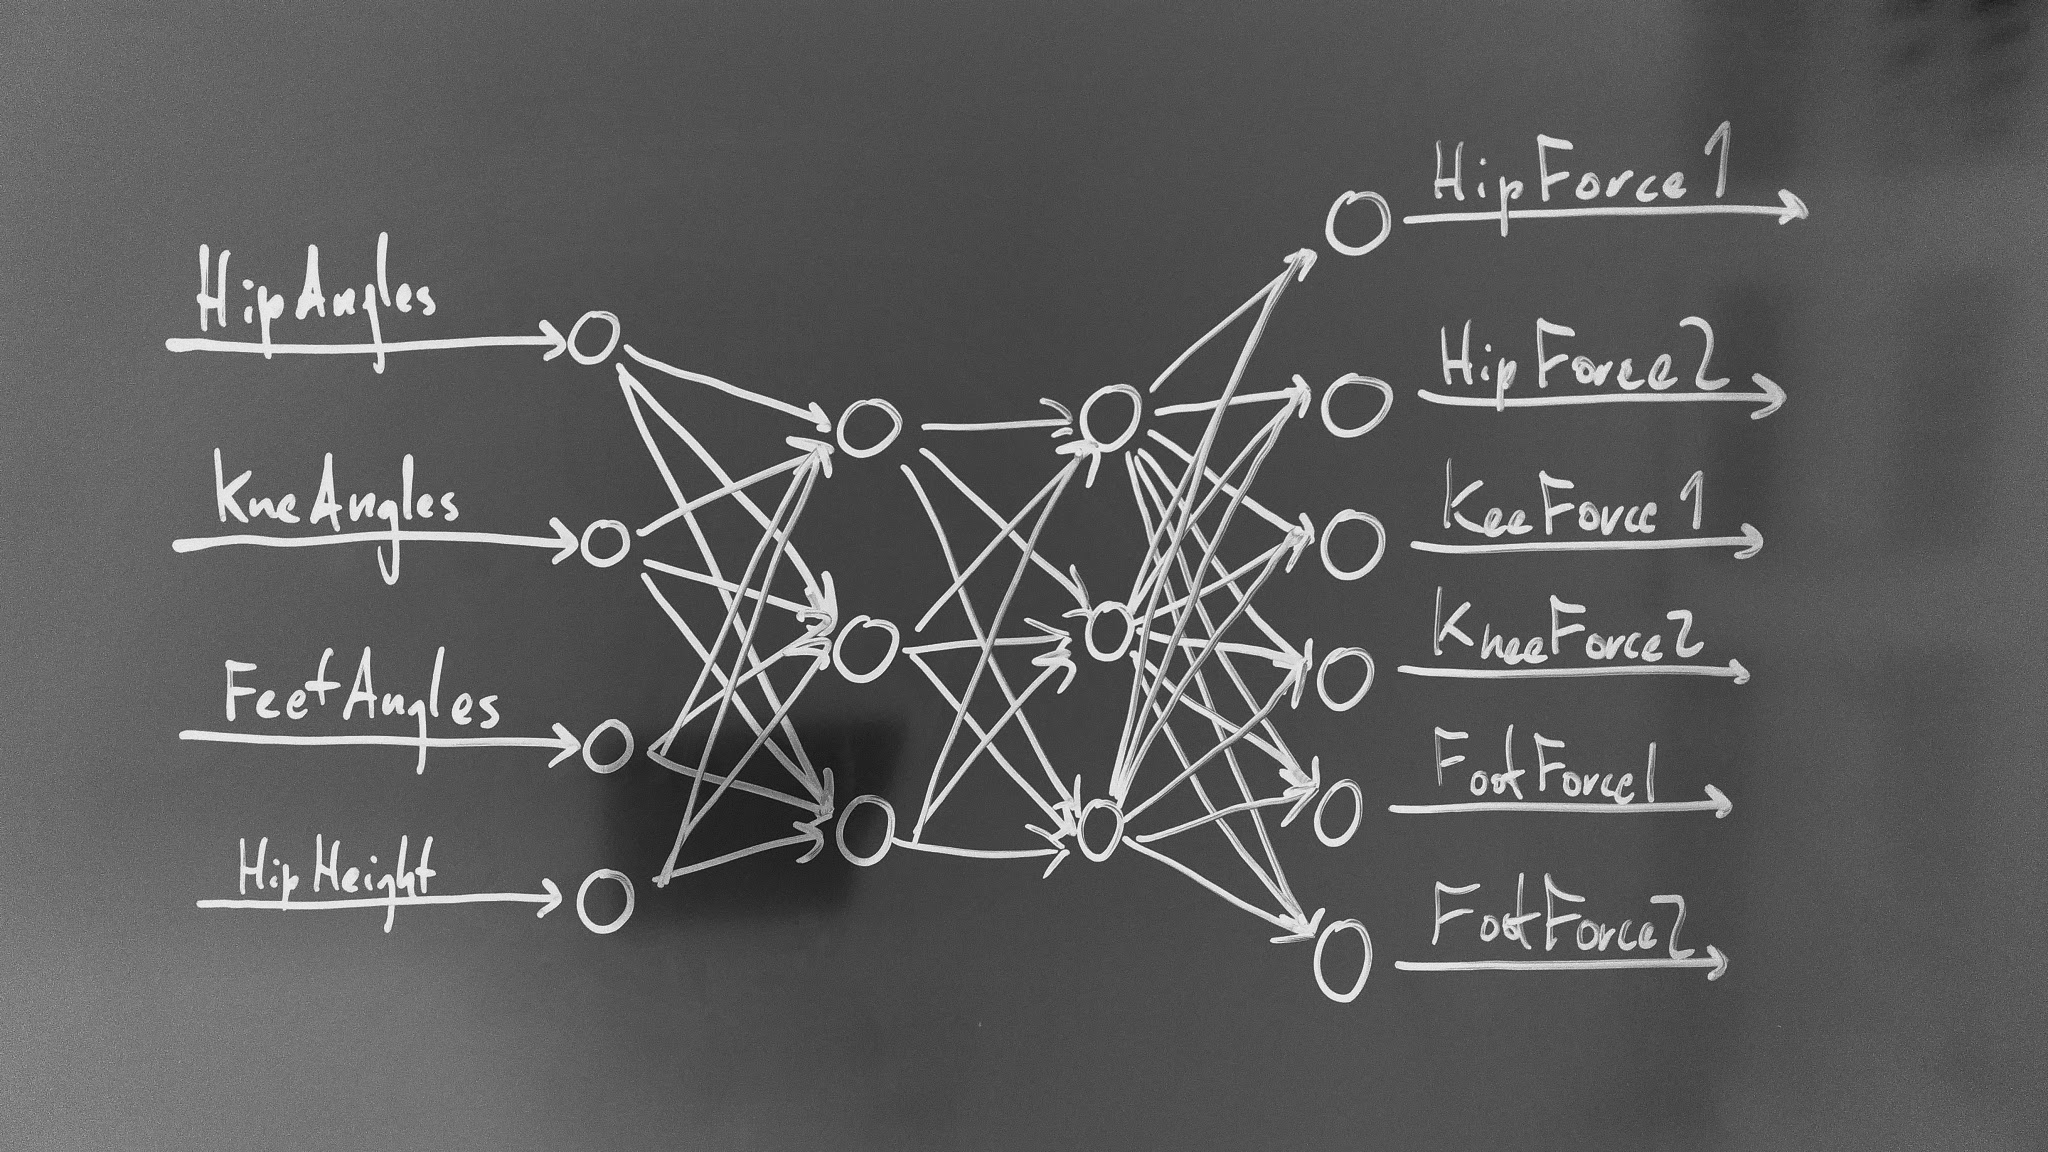 HipAngles
KneAngles
FeetAngles
HipHeight
HipForce1
HipForce2
KeeForce1
KneeForce2
FootForce1
FootForce2